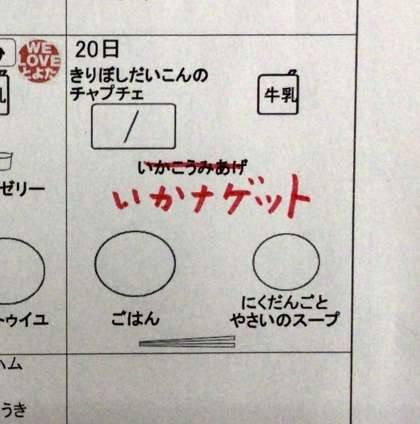 WE
LOVE
とよた
20日
きりぼしだいこんの
チャプチェ
牛乳
乳
いかこうみあげ
いかナゲット
ゼリー
ごはん
にくだんごと
やさいのスープ
トゥイユ
ハム
うき